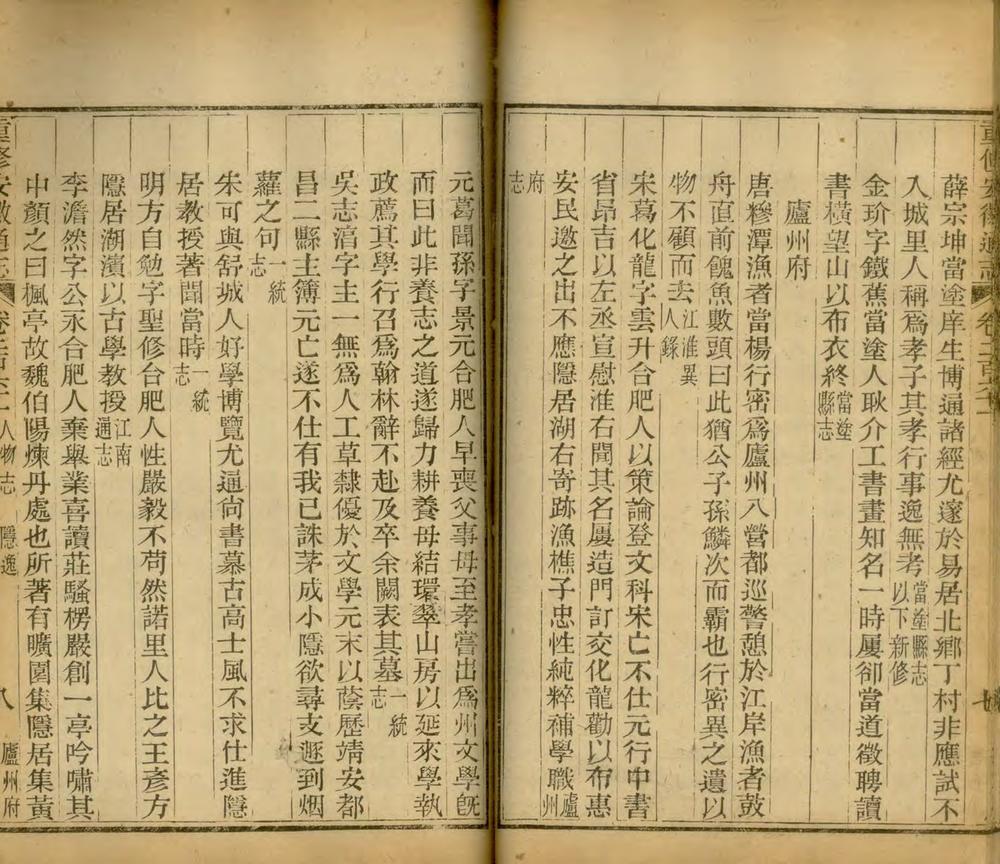 薛宗坤當塗庠生博通諸經尤邃於易居北鄉丁村非應試不
入城里人稱爲孝子其孝行事逸無考當塗縣志以下新修
金玠字鐵蕉當塗人耿介工書畫知名一時屢卻當道徵聘讀
書橫望山以布衣終當塗縣志
廬州府
唐糝潭漁者當楊行密爲廬州八營都巡警憩於江岸漁者鼓
舟直前餽魚數頭曰此猶公子孫鱗次而霸也行密異之遺以
物不顧而去江淮異人錄
宋葛化龍字雲升合肥人以策論登文科宋亡不仕元行中書
省昂吉以左丞宣慰淮右聞其名屢造門訂交化龍勸以布惠
安民邀之出不應隱居湖右寄跡漁樵子忠性純粹補學職廬州
府志
元葛聞孫字景元合肥人早喪父事母至孝嘗出爲州文學旣
而曰此非養志之道遂歸力耕養母結環翠山房以延來學執
政薦其學行召爲翰林辭不赴及卒余闕表其墓一統志
吳志淯字主一無爲人工草隸優於文學元末以蔭歷靖安都
昌二縣主簿元亡遂不仕有我已誅茅成小隱欲尋支遯到烟
蘿之句一統志
朱可與舒城人好學博覽尤通尙書慕古高士風不求仕進隱
居教授著聞當時一統志
明方自勉字聖修合肥人性嚴毅不苟然諾里人比之王彥方
隱居湖濱以古學教授江南通志
李澹然字公永合肥人棄舉業喜讀莊騷楞嚴創一亭吟嘯其
中顏之曰楓亭故魏伯陽煉丹處也所著有曠園集隱居集黃
重修安徽通志 人物志 隱逸 八 廬州府